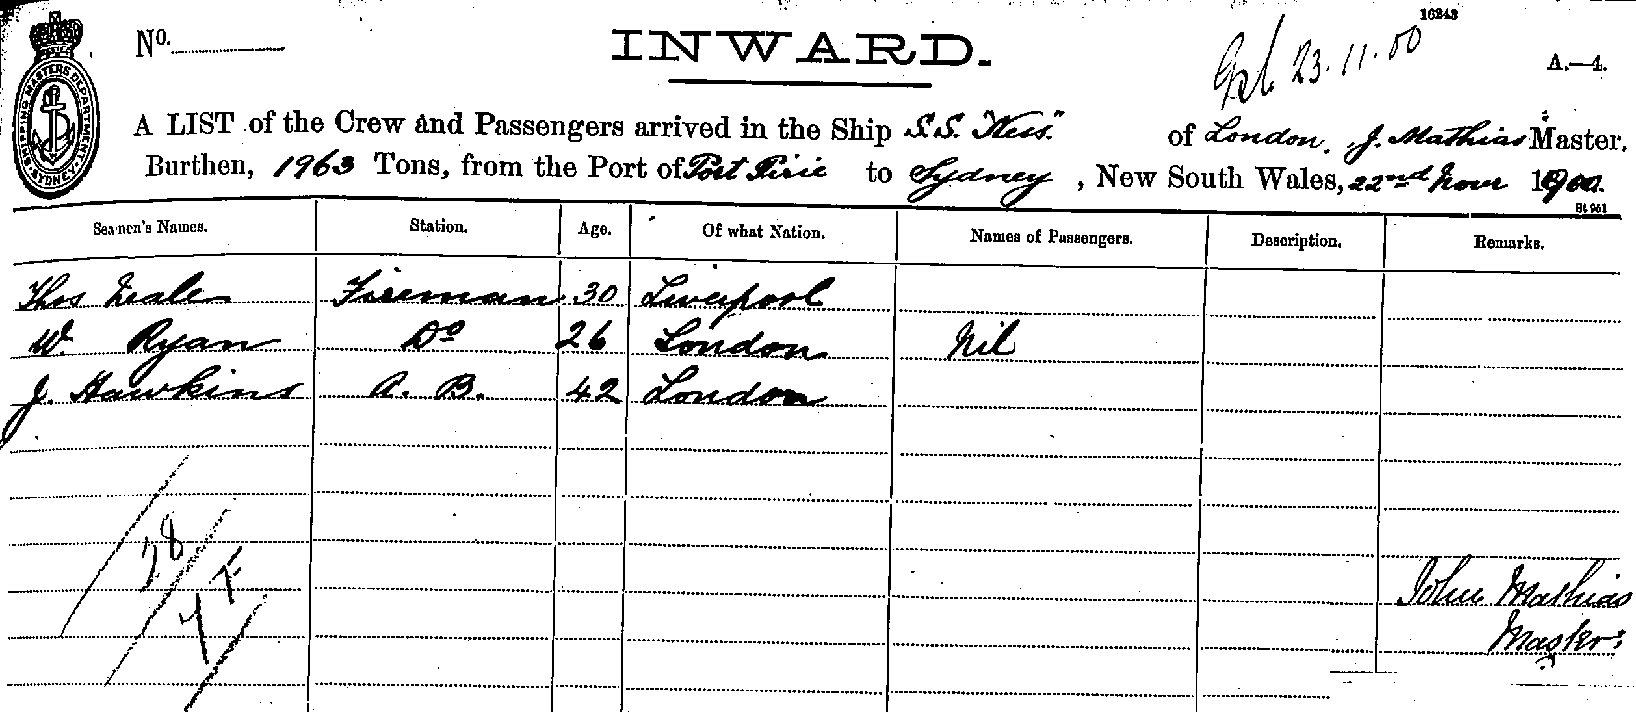 16243
No.
INWARD.
23.11.00
A.—4.
SHIPPING MASTERS DEPARTMENT SYDNEY
A LIST of the Crew and Passengers arrived in the Ship S.S. "Ness" of London, J. Mathias Master.
Burthen, 1963 Tons, from the Port of Port Pirie to Sydney, New South Wales, 22nd Novr 1900.
St 961
Seamen's Names. Station. Age. Of what Nation. Names of Passengers. Description. Remarks.
Thos Neale Fireman 30 Liverpool
W. Ryan Do 26 London Nil
J. Hawkins A. B. 42 London
28
John Mathias
Master